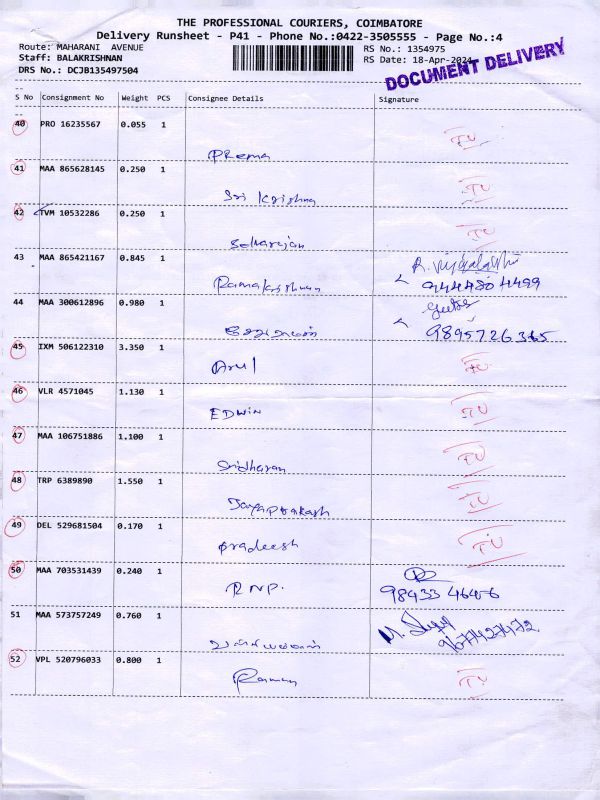 THE PROFESSIONAL COURIERS, COIMBATORE
Delivery Runsheet - P41 - Phone No.:0422-3505555 - Page No.:4
Route: MAHARANI AVENUE RS No.: 1354975
Staff: BALAKRISHNAN RS Date: 18-Apr-2024
DRS No.: DCJB135497504
DOCUMENT DELIVERY
S No Consignment No Weight PCS Consignee Details Signature
40 PRO 16235567 0.055 1
Prema
41 MAA 865628145 0.250 1
Sri Krishna
42 TVM 10532286 0.250 1
43 MAA 865421167 0.845 1
Ramakrishnan
44 MAA 300612896 0.980 1
45 IXM 506122310 3.350 1
Arul
46 VLR 4571045 1.130 1
EDWIN
47 MAA 106751886 1.100 1
Sridharan
48 TRP 6389890 1.550 1
Jayaprakash
49 DEL 529681504 0.170 1
Pradeesh
50 MAA 703531439 0.240 1
RNP.
51 MAA 573757249 0.760 1
52 VPL 520796033 0.800 1
Raman